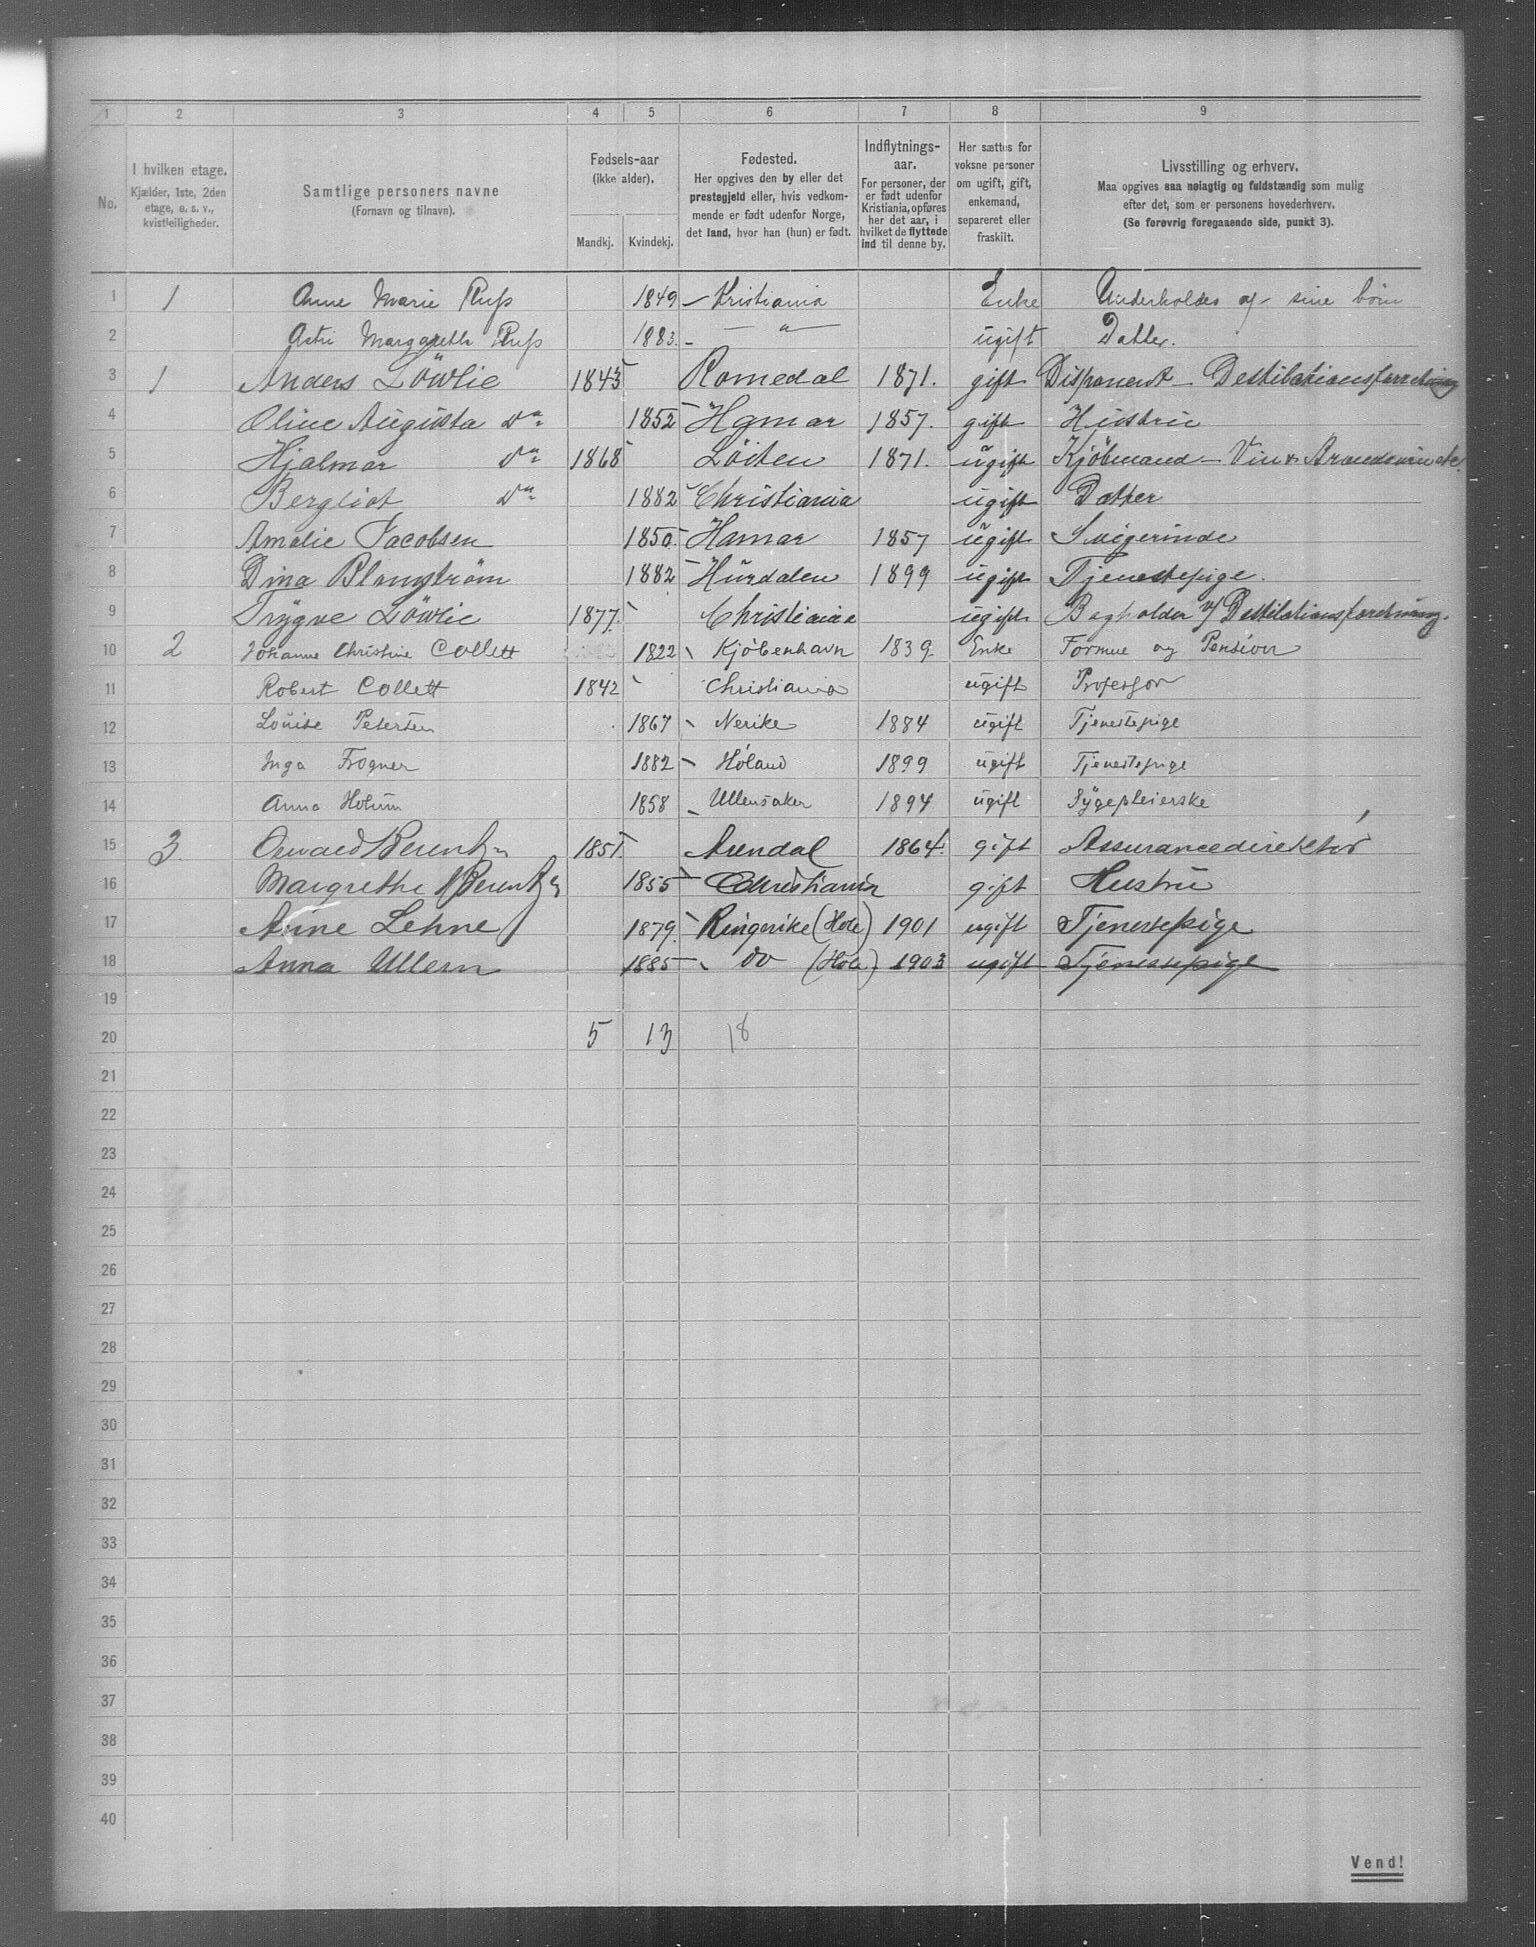 1 2 3 4 5 6 7 8 9
No.
I hvilken etage.
Kjælder, 1ste, 2den
etage, o. s. v.,
kvistleiligheder.
Samtlige personers navne
(Fornavn og tilnavn).
Fødsels-aar
(ikke alder).
Mandkj. Kvindekj.
Fødested.
Her opgives den by eller det
prestegjeld eller, hvis vedkom-
mende er født udenfor Norge,
det land, hvor han (hun) er født.
Indflytnings-
aar.
For personer, der
er født udenfor
Kristiania, opføres
her det aar, i
hvilket de flyttede
ind til denne by.
Her sættes for
voksne personer
om ugift, gift,
enkemand,
separeret eller
fraskilt.
Livsstilling og erhverv.
Maa opgives saa nøiagtig og fuldstændig som mulig
efter det, som er personens hovederhverv.
(Se forøvrig foregaaende side, punkt 3).
1 1 Anne Marie Russ 1849 Kristiania Enke Underholdes af sine børn
2 Astri Margarethe Russ 1883 — " — ugift Datter.
3 1 Anders Löwlie 1843 Romedal 1871. gift Disponent - Destilationsforretning
4 Oline Augusta do 1852 Hamar 1857. gift Hustrü
5 Hjalmar do 1868 Löiten 1871. ügift Kjöbmand - Vin &
6 Bergliot do 1882 Christiania ugift Datter
7 Amalie Jacobsen 1850. Hamar 1857 ügift Svigerinde
8 Dina Blomström 1882 Hürdalen 1899 ugift Tjenestepige.
9 Trygve Löwlie 1877. Christiania ugift Bogholder v/ Destilationsforretning.
10 2 Johanne Christine Collett 1822 Kjöbenhavn 1839 Enke Formue og Pension
11 Robert Collett 1842 Christiania ugift Professor
12 Louise Petersen 1867 Nerike 1884 ugift Tjenestepige
13 Inga Frogner 1882 Höland 1899 ugift Tjenestepige
14 Anna Holum 1858 Ullensaker 1894 ugift Sygepleierske
15 3. Oswald Berentzen 1851. Arendal 1864. gift Assurancedirektör
16 Margrethe Berentzen 1855 Christiania gift Hustru
17 Anne Lehne 1879. Ringerike (Hole) 1901 ugift Tjenestepige
18 Anna Ullern 1885 do (Hole) 1903 ugift Tjenestepige
19
20 5 13 18
21
22
23
24
25
26
27
28
29
30
31
32
33
34
35
36
37
38
39
40
Vend!